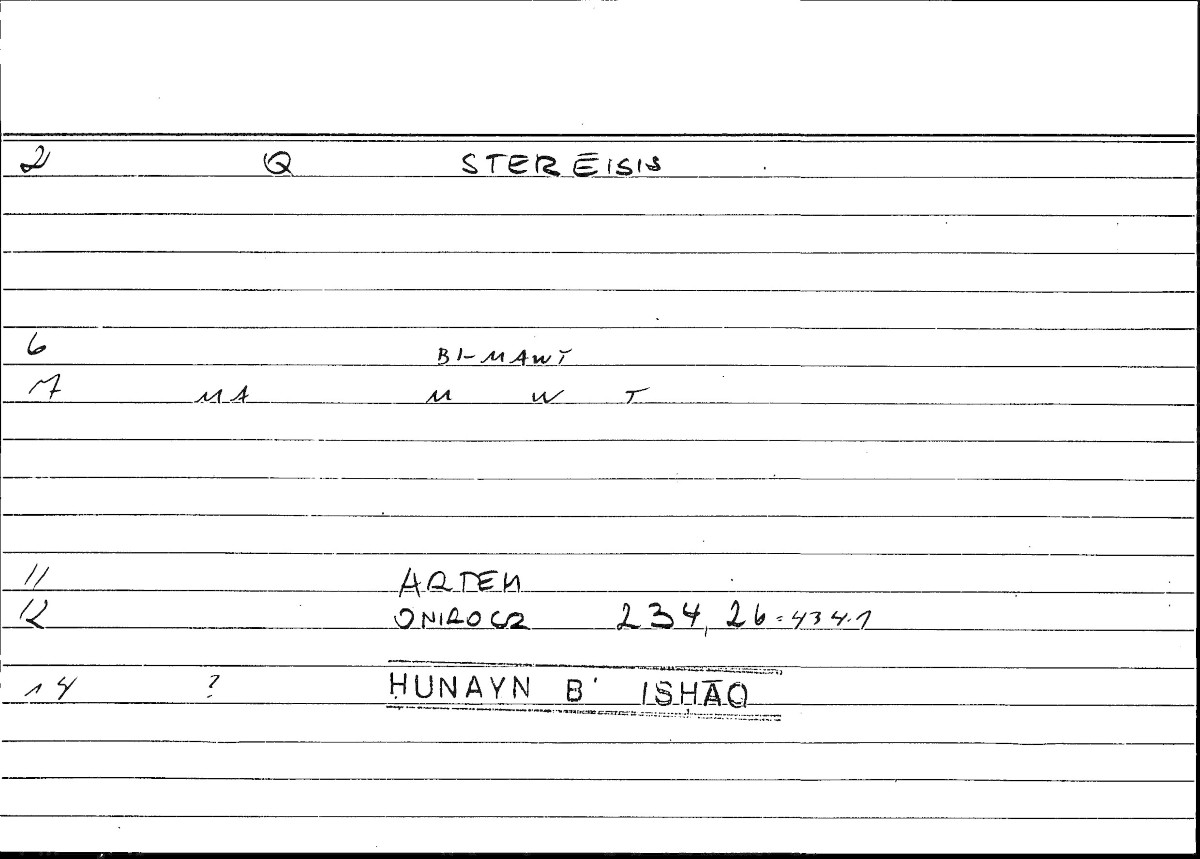 2 Q STERĒISIS
6 BI-MAWT
7 MA M W T
11 ARTEM
12 ONIROCR 234, 26 = 434.1
14 ? ḤUNAYN B' ISḤĀQ